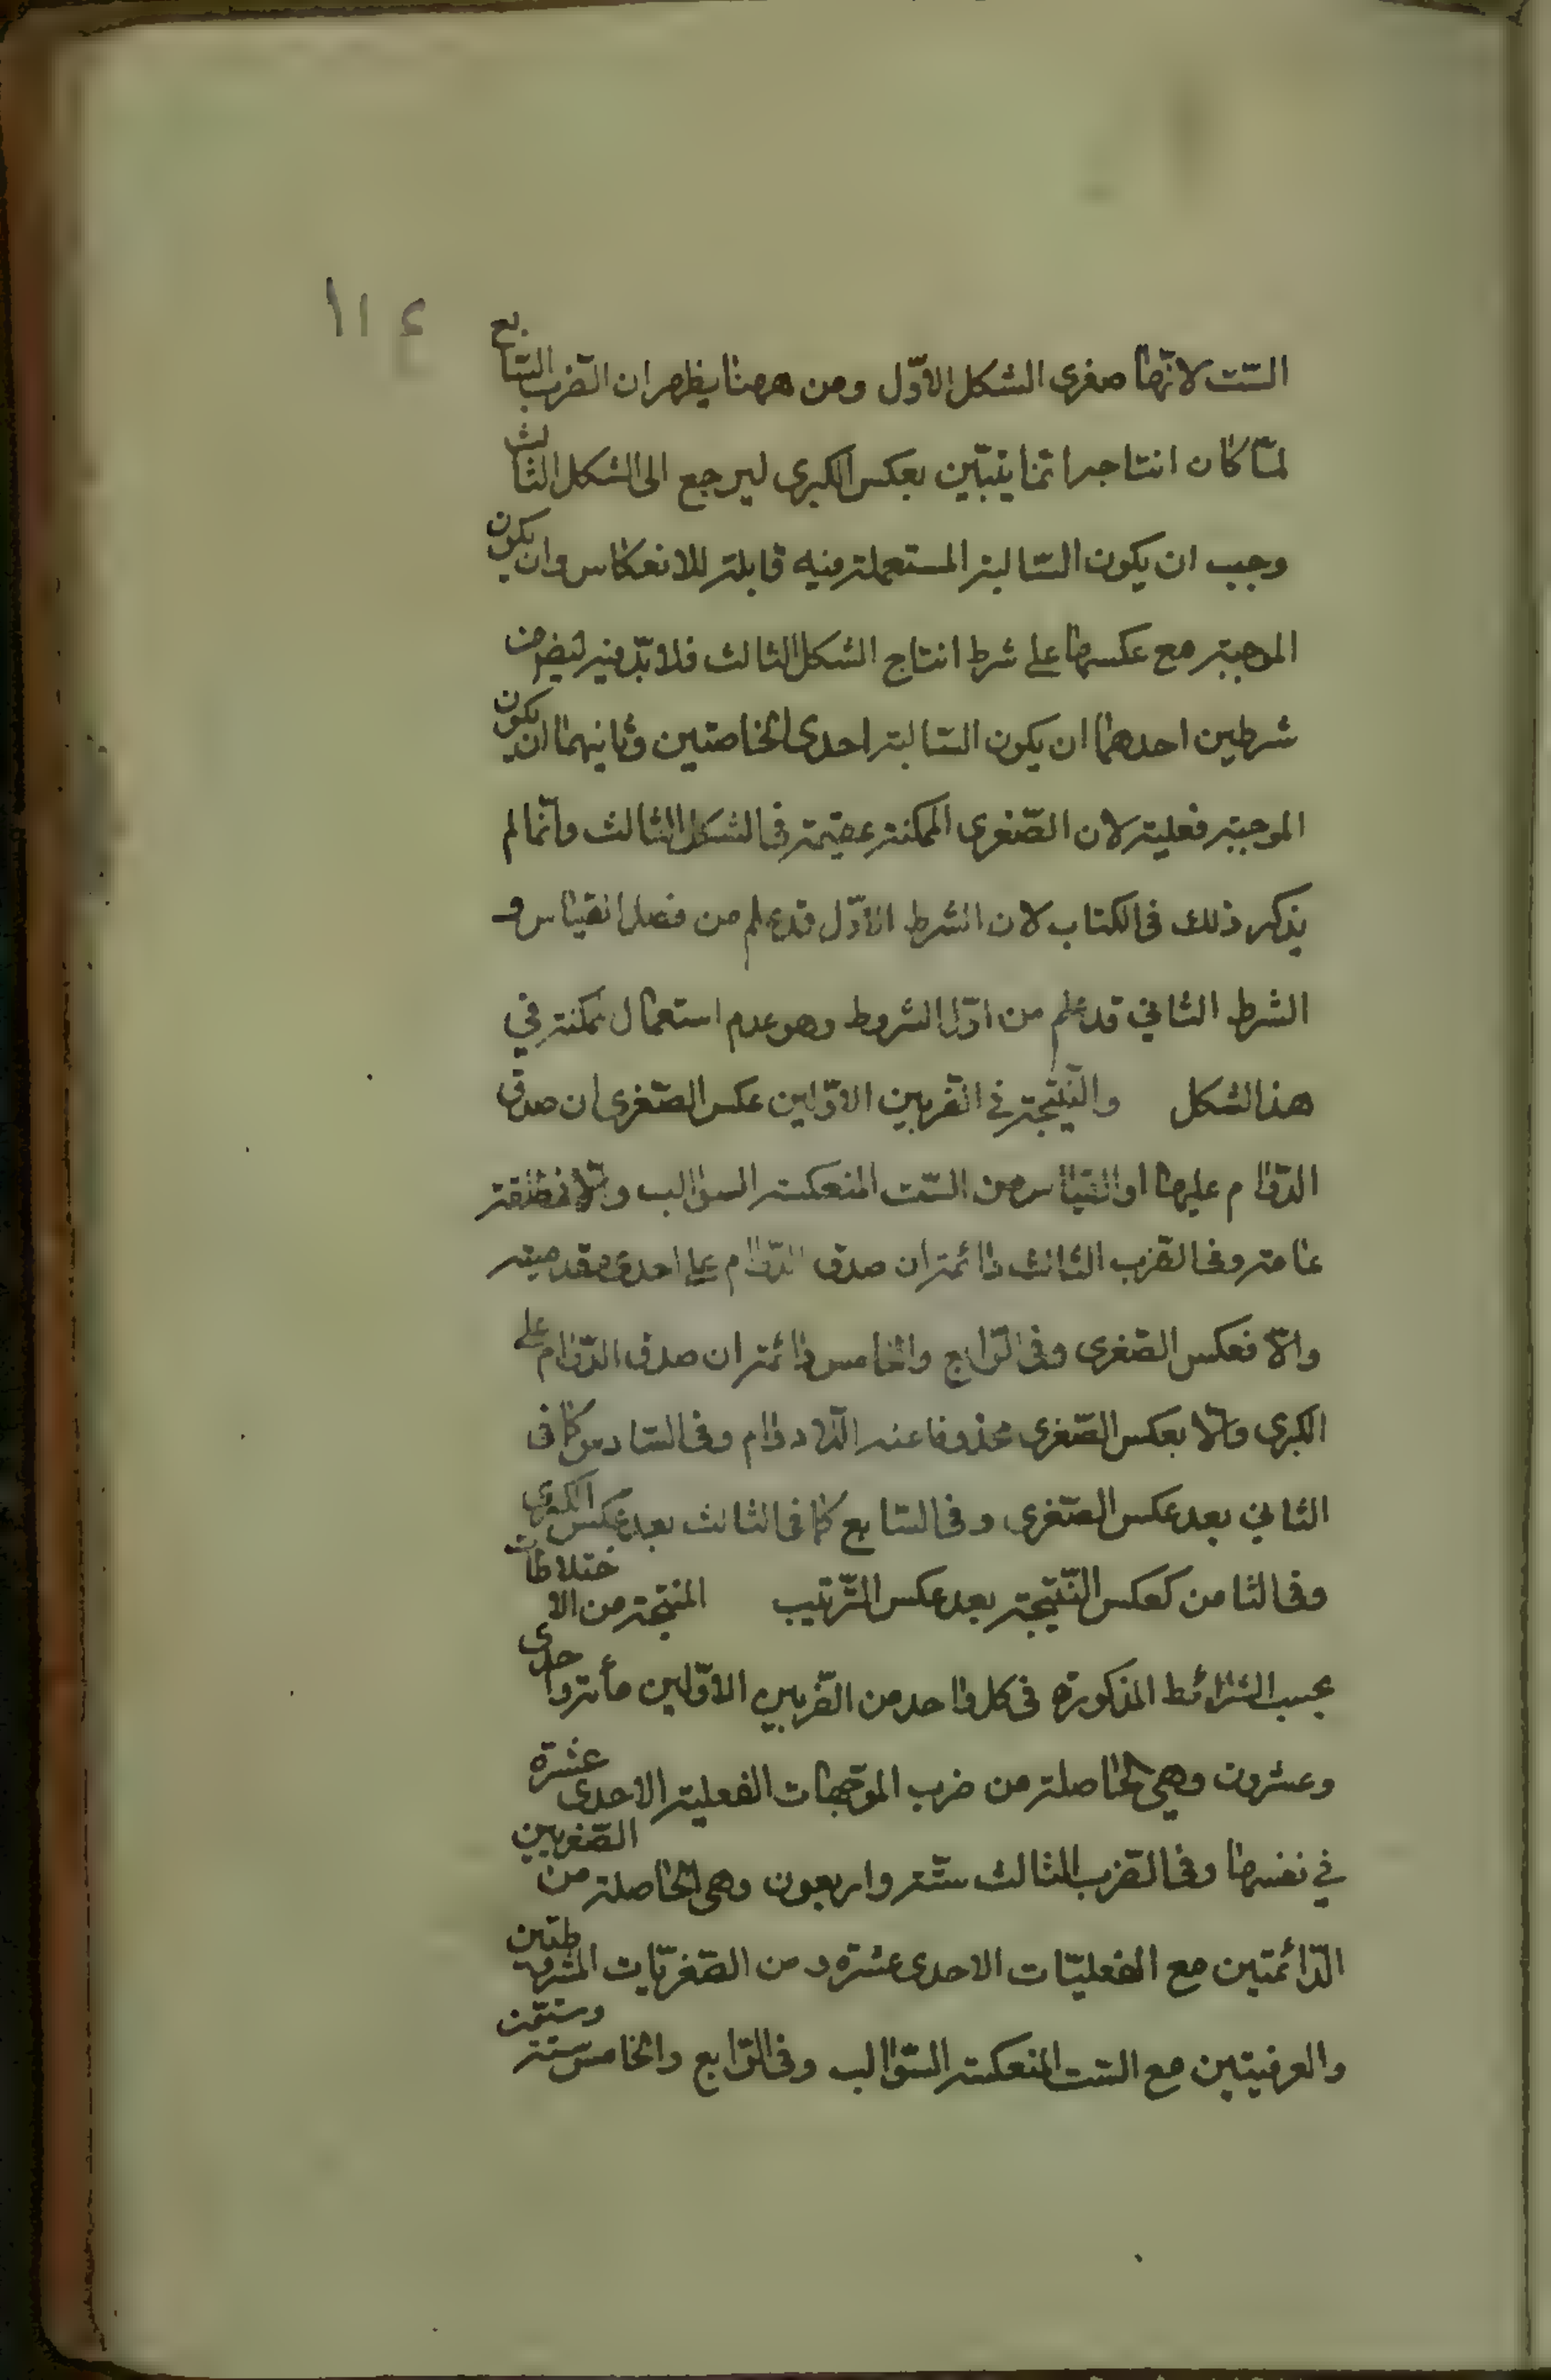 ١١٤
الستت لانها صغرى الشكل الاوّل ومن ههنا يظهر ان الضرب السّابع
لمّا كان انتاجه انّما يتبيّن بعكس الكبرى ليرجع الى الشكل الثالث
وجب ان يكون السّالبة المستعملة فيه قابلة للانعكاس وان يكون
الموجبة مع عكسها على شرط انتاج الشكل الثالث فلا بدّ فيه ايضا من
شرطين احدهما ان يكون السّالبة احدى الخاصتين وثانيهما ان يكون
الموجبة فعلية لان الصّغرى الممكنة عقيمة فى الشكل الثالث وانّما لم
يذكر ذلك فى الكتاب لان الشرط الاوّل قد علم من فصل القياس و
الشرط الثاني قد علم من اوّل الشروط وهو عدم استعمال ممكنة في
هذا الشكل والنّتيجة في الضّربين الاوّلين عكس الصّغرى ان صدق
الدّوام عليها او القياس من السّت المنعكسة السوالب والّا فمطلقة
عامة وفى الضرب الثالث دائمة ان صدق الدّوام على احدى مقدميته
والّا فعكس الصّغرى وفى الرّابع والخامس دائمة ان صدق الدّوام على
الكبرى والّا بعكس الصّغرى محذوفا عنه اللّادوام وفى السّادس كما فى
الثاني بعد عكس الصّغرى وفى السّابع كما فى الثالث بعد عكس الكبرى
وفى الثامن كعكس النّتيجة بعد عكس التّرتيب المنتجة من الاختلاطات
بحسب الشرائط المذكورة فى كل واحد من الضّربين الاوّلين مأة واحدى
وعشرون وهي الحاصلة من ضرب الموّجهات الفعلية الاحدى عشرة
في نفسها وفى الضّرب الثالث ستّة واربعون وهى الحاصلة من الصّغريين
الدّائمتين مع الفعليّات الاحدى عشرة ومن الصّغريّات المشروطتين
والعرفيتين مع الستت المنعكسة السّوالب وفى الرّابع والخامس ستة وستّون